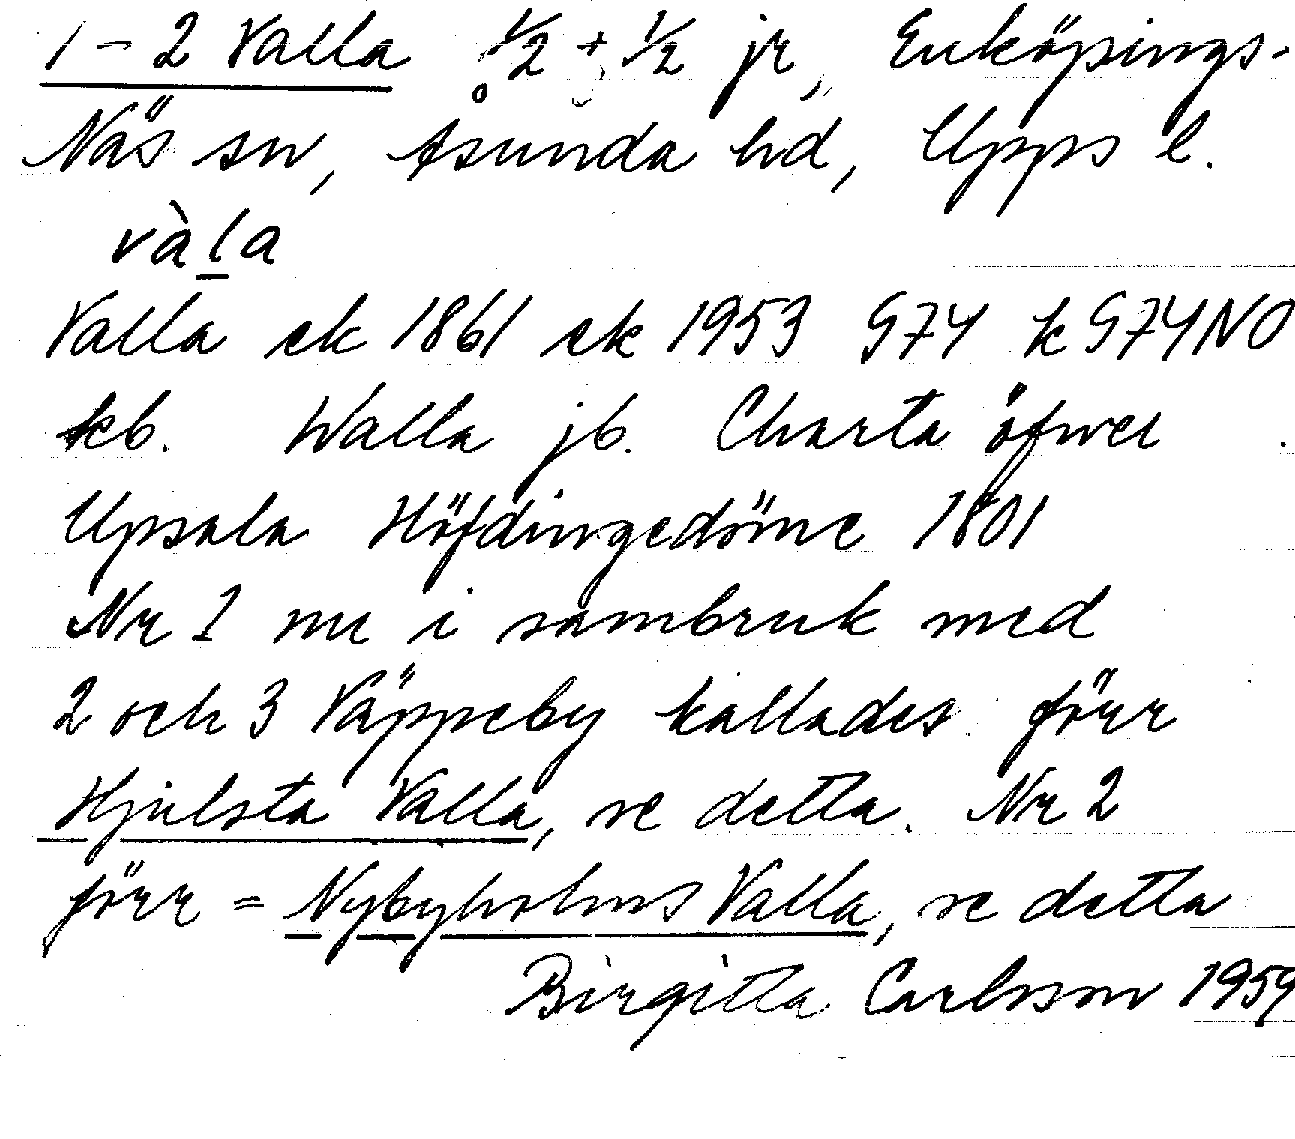 1–2 Valla 1/2 + 1/2 jr, Enköpings-
Näs sn, Åsunda hd, Upps l.
vàla
Valla ek 1861 ek 1953 974 k 974NO
kb. Walla jb. Charta öfwer
Upsala Höfdingedöme 1801
Nr 1 nu i sambruk med
2 och 3 Väppeby kallades förr
Hjulsta Valla, se detta. Nr 2
förr = Nybyholms Valla, se detta
Birgitta Carlsson 1959